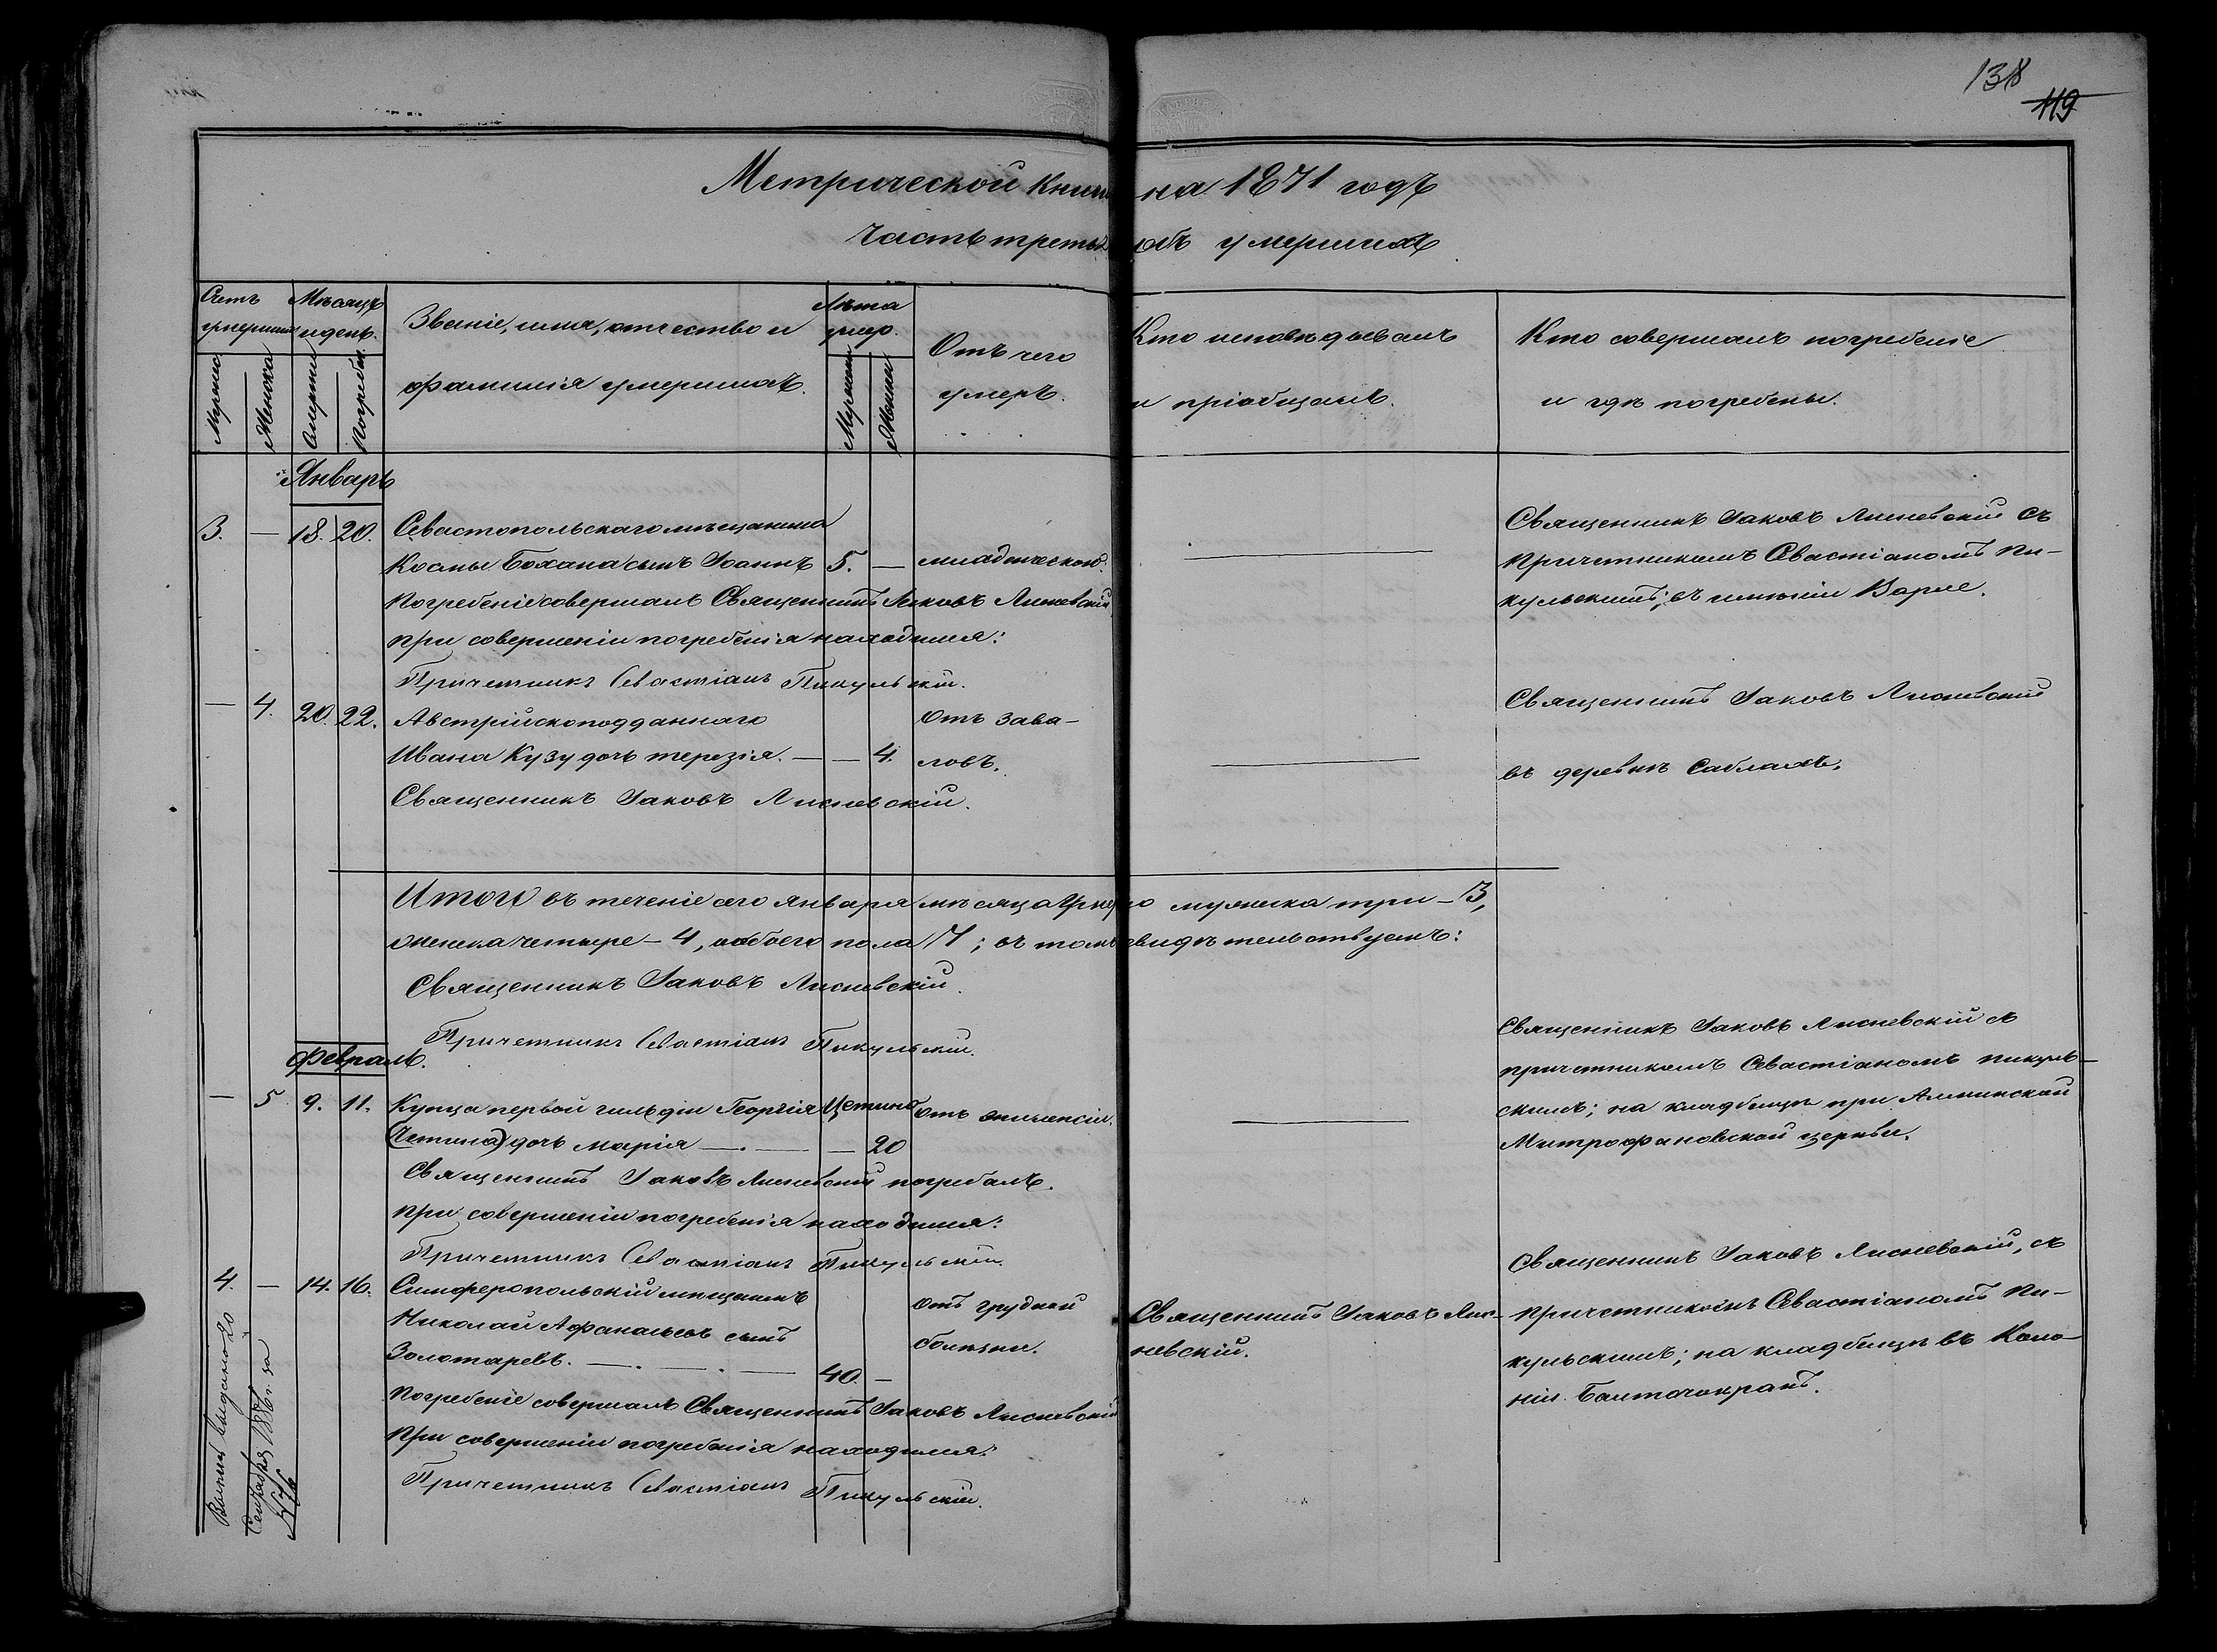 138
119
Метрической книги на 1871 годъ
Часть третья объ умершихъ
Счетъ умершихъ
Мужеска
Женска
Мѣсяцъ и день.
Смерти
Погребен.
Званіе, имя, отчество и
фамилія умершихъ.
Лѣта умер.
Мужеска
Женска
Отъ чего
умеръ.
Кто исповѣдывалъ
и пріобщалъ.
Кто совершалъ погребеніе
и гдѣ погребены.
Январь
3. — 18. 20. Севастопольскаго мѣщанина
Космы Бохана сынъ Іоаннъ 5. — младенческой.
Погребеніе совершалъ Священникъ Іаковъ Лисневскій
при совершеніи погребенія находился:
Причетникъ Севастіанъ Пикульскій.
Священникъ Іаковъ Лисневскій съ
Причетникомъ Севастіаномъ Пи-
кульскимъ; въ имѣніи
— 4. 20. 22. Австрійскоподданнаго
Ивана Кузу дочь Терезія. — — 4.
Отъ зава-
ловъ.
Священникъ Іаковъ Лисневскій.
Священникъ Іаковъ Лисневскій
въ деревнѣ Саблахъ.
Итого въ теченіе сего Января мѣсяца умерло мужеска три — 3,
женска четыре — 4, обоего пола 7; въ томъ свидѣтельствуемъ:
Священникъ Іаковъ Лисневскій.
Причетникъ Севастіанъ Пикульскій.
Февраль.
— 5 9. 11. Купца первой гильдіи Георгія Цетино
(Четина) дочь Марія — . — — 20
Отъ эпилепсіи.
Священникъ Іаковъ Лисневскій погребалъ.
при совершеніи погребенія находился:
Причетникъ Севастіанъ Пикульскій.
Священникъ Іаковъ Лисневскій съ
причетникомъ Севастіаномъ Пикуль-
скимъ; на кладбищѣ при Алминской
Митрофановской церкви.
4. — 14. 16. Симферопольскій мѣщанинъ
Николай Афанасьевъ сынъ
Золотаревъ. — . — . — 40. —
Отъ грудной
болѣзни.
Священникъ Іаковъ Лис-
невскій.
Погребеніе совершалъ Священникъ Іаковъ Лисневскій
При совершеніи погребенія находился:
Причетникъ Севастіанъ Пикульскій.
Священникъ Іаковъ Лисневскій, съ
Причетникомъ Севастіаномъ Пи-
кульскимъ; на кладбищѣ въ Коло-
ніи
Выпись выдана 20
Сентября 1876 г. за
№ 76